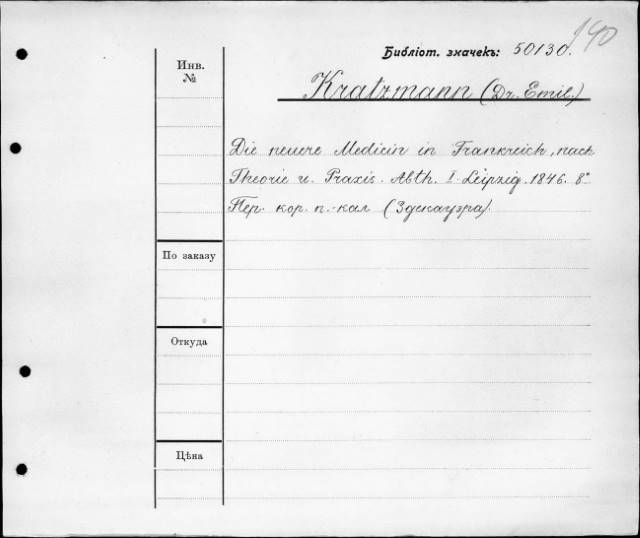 140
Библіот. значекъ: 50130.
Инв.
№
Kratzmann (Dr. Emil.)
Die neuere Medicin in Frankreich, nach
Theorie u. Praxis. Abth. I. Leipzig. 1846. 8°
Пер. кор. п.-кал (3 декауэра).
По заказу
Откуда
Цѣна